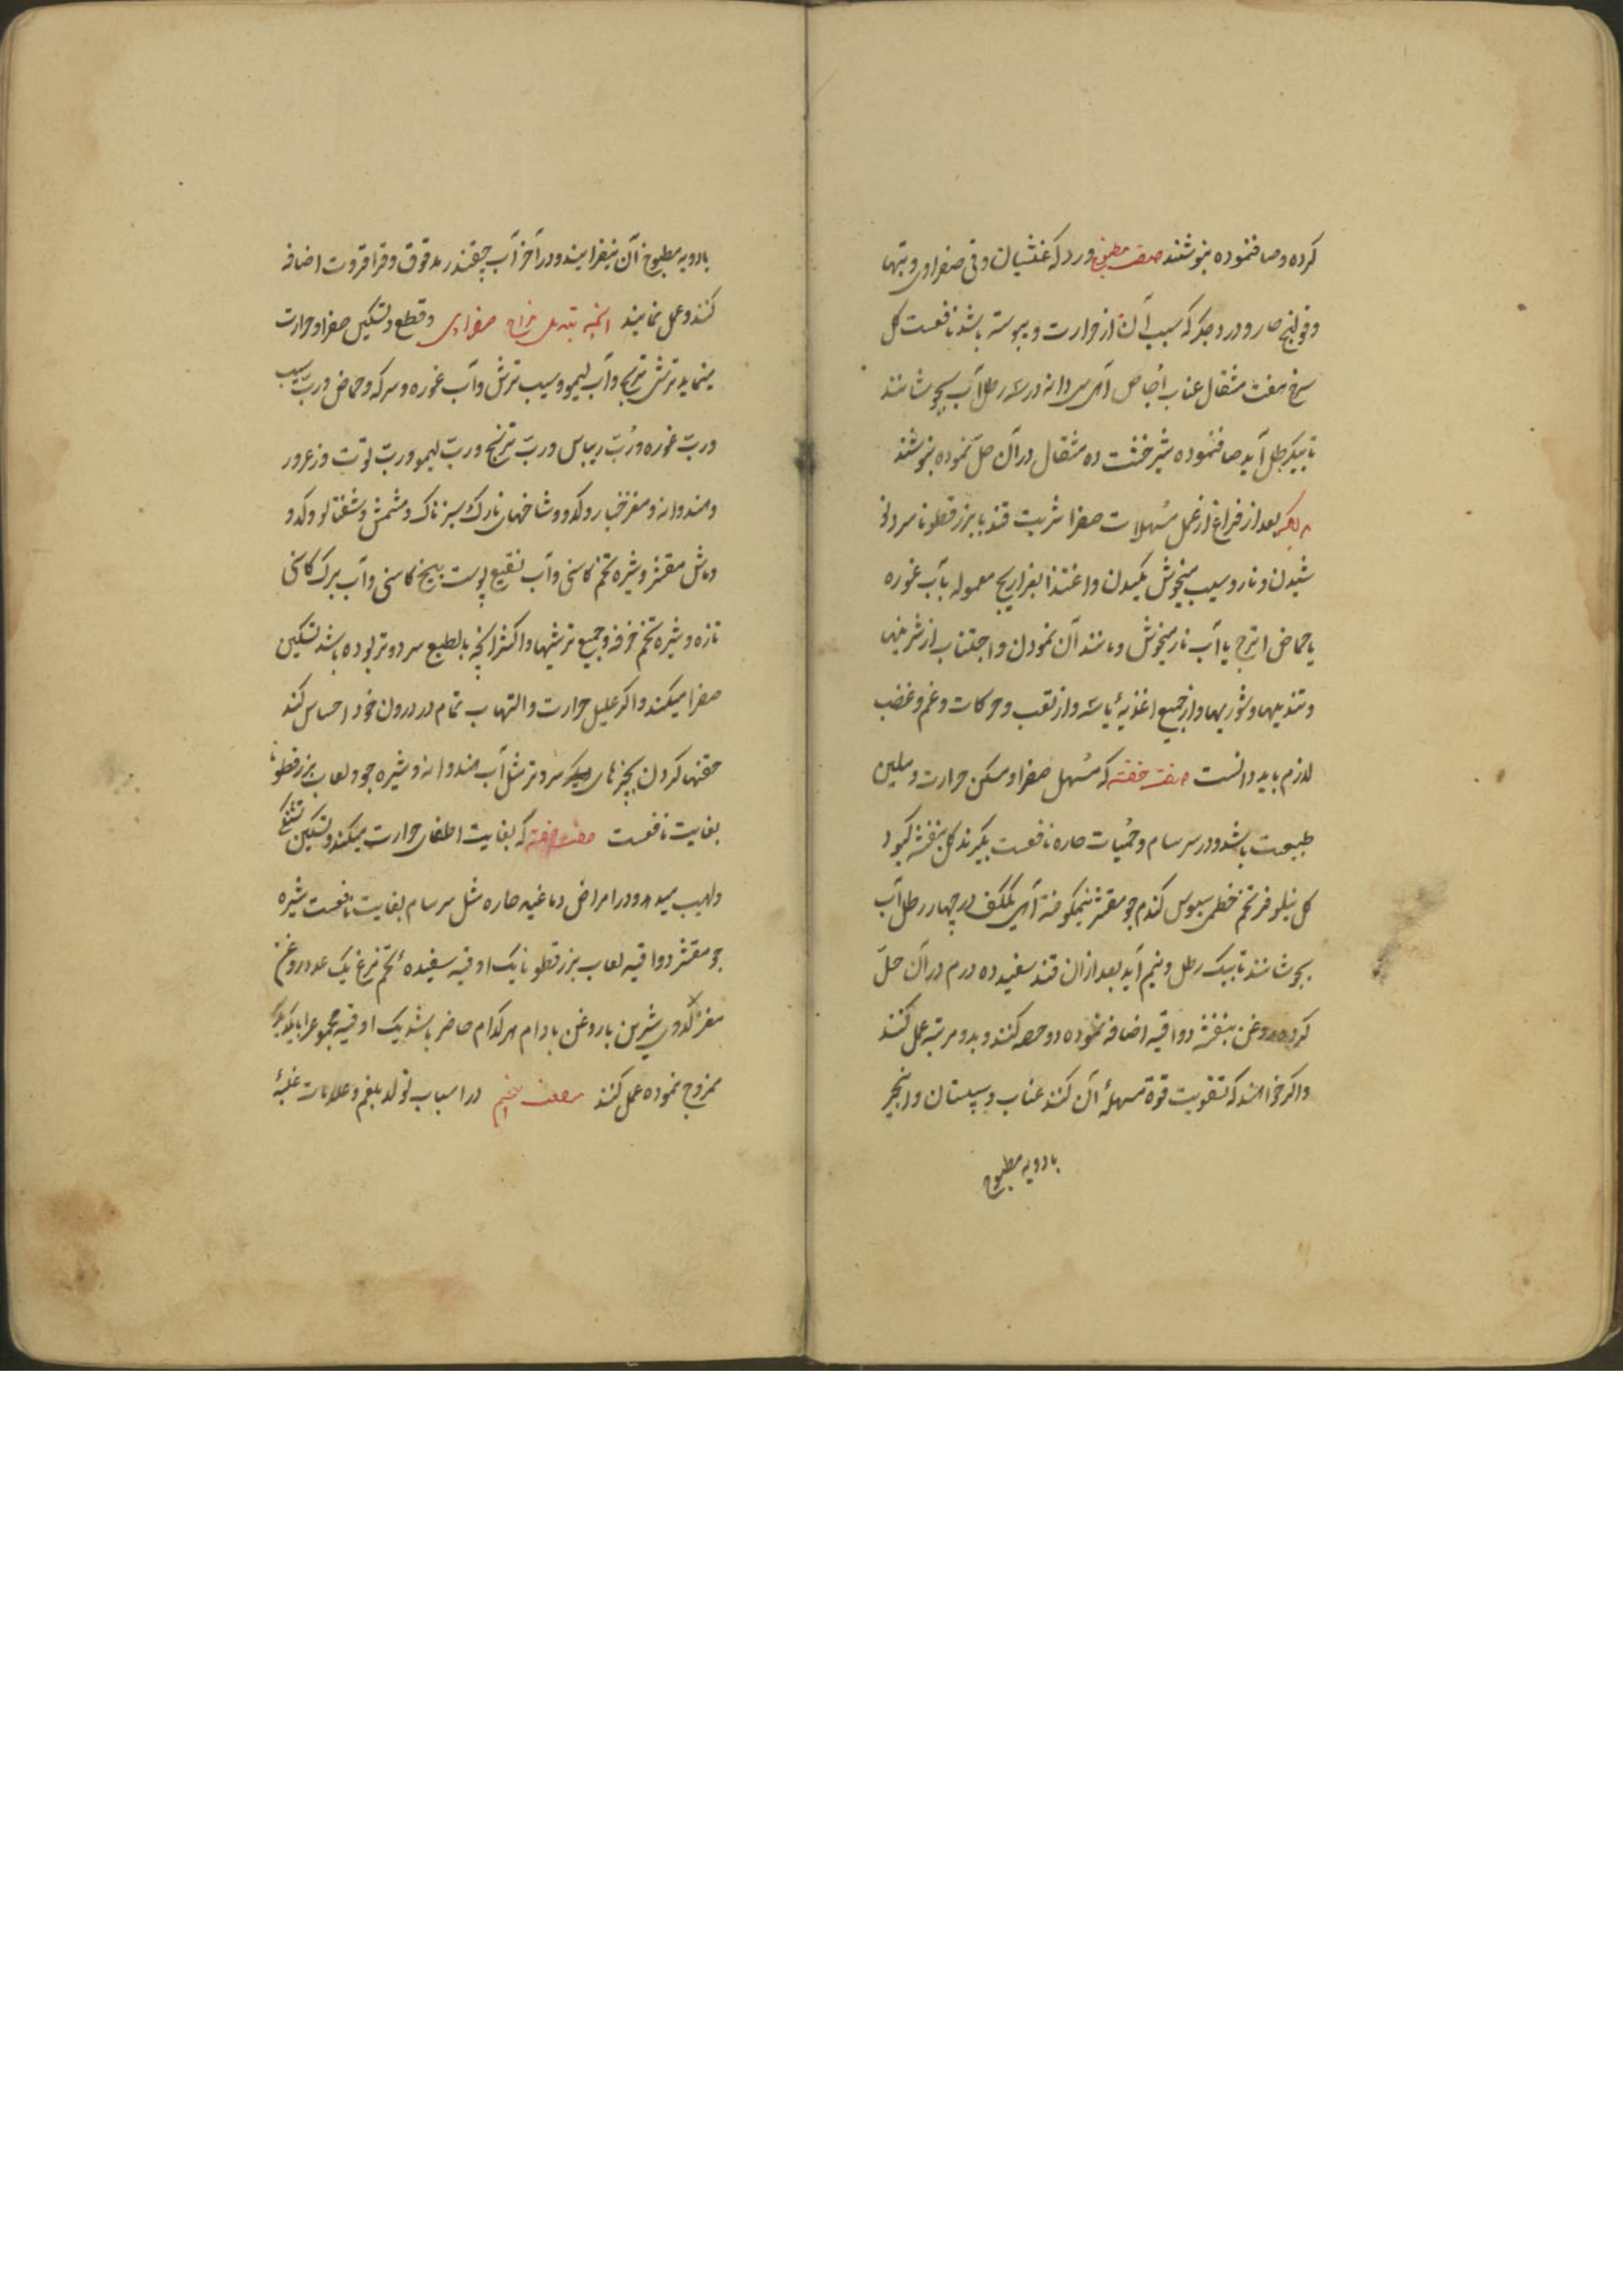 کرده و صاف نموده بنوشند صفت مطبوخ ورد که غثیان و قی صفراوی و تبها
و قولنج حار و درد جگر که سبب آن از حرارت و یبوسته باشد نافعست کل
سرخ هفت مثقال عناب اجاص آمر سی دانه در سه رطل آب بجوشانند
تا بیکرطل آید صاف نموده شیرخشت ده مثقال در آن حل نموده بنوشند
بعد از فراغ از عمل مسهلات صفرا شربت قند با بزرقطونا سرد نو
شیدن و نار و سیب میخوش مکیدن و اغتذا بفراریج معموله بآب غوره
یا حماض اترج یا آب نار میخوش و مانند آن نمودن و اجتناب از شرینیها
و تندیها و شوریها و از جمیع اغذیهٔ یابسه و از تعب و حرکات و غم و غضب
لازم باید دانست صفت حقنه که مسهل صفرا و مسکن حرارت و ملین
طبیعت باشد و در سرسام و حمیات حاره نافعست بکیرند کل بنفشه کبود
کل نیلوفر تخم خطمی سبوس کندم جو مقشر نیمکوفته آمر یککف در چهار رطل آب
بجوشانند تا بیک رطل و نیم آید بعد از ان قند سفید ده درم در آن حل
کرده روغن بنفشه دو اقیه اضافه نموده دو حصه کنند و بدو مرتبه عمل کنند
و اکر خواهند که تقویت قوة مسهلهٔ آن کنند عناب و سپستان و انجیر
بادویه مطبوخ
بادویه مطبوخ آن بیفزایند و در آخر آب چقندر مدقوق و قراقروت اضافه
کنند و عمل نمایند آنچه تبدیل مزاج صفراوی و قطع و تسکین صفرا و حرارت
مینماید ترشی ترنج و آب لیمو و سیب ترش و آب غوره و سرکه و حماض و رب سیب
و رب غوره و رب ریباس و رب ترنج و رب لیمو و رب توت و زعرور
و هندوانه و مغز خیار و کدو و شاخهای نازک سبز تاک و مشمش و شفتالو و کدو
و ماش مقشر و شیره تخم کاسنی و آب نقیع پوست بیخ کاسنی و آب برک کاسنی
تازه و شیره تخم خرفه و جمیع ترشیها و اکثر آنچه بالطبع سرد و تر بوده باشد تسکین
صفرا میکند و اکر علیل حرارت و التهاب تمام در درون خود احساس کند
حقنها کردن بچیزهای سرد و تر مثل آب هندوانه و شیره جو و لعاب بزرقطونا
بغایت نافعست صفت حقنه که بغایت اطفای حرارت میکند و تسکین تشنکی
و لهیب میدهد و در امراض دماغیه حاره مثل سرسام بغایت نافعست شیره
جو مقشر دو اقیه لعاب بزرقطونا یک اوقیه سفیدهٔ تخم مرغ یک عدد روغن
مغز کدوی شیرین یا روغن بادام هرکدام حاضر باشد یک اوقیه مجموع را بایکدیکر
ممزوج نموده عمل کنند در اسباب تولد بلغم و علامات غلبهٔ